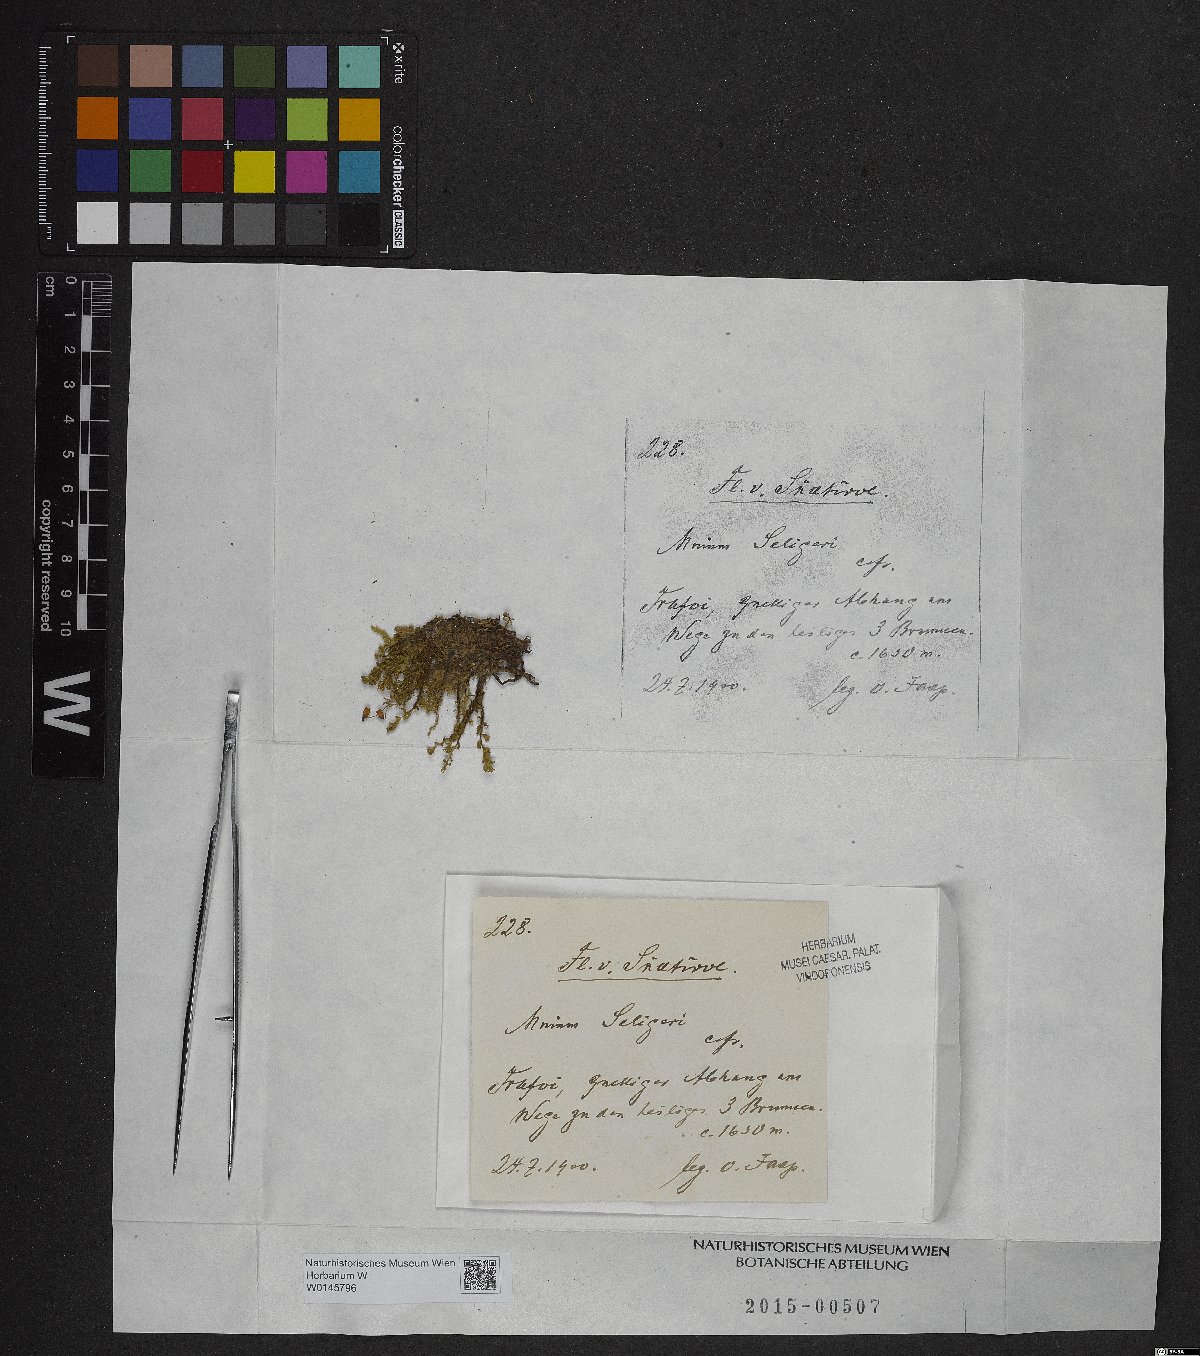 x-rite
colorchecker CLASSIC
mm
0 1 2 3 4 5 6 7 8 9 10
cm
copyright reserved
W
228.
Fl. v. Südtirol.
Mnium Seligeri
cfr.
Trafoi, quelliger Abhang am
Wege zu den heiligen 3 Brunnen.
c. 1650 m.
24.7.1900. leg. O. Jaap.
228.
Fl. v. Südtirol.
Mnium Seligeri
cfr.
Trafoi, quelliger Abhang am
Wege zu den heiligen 3 Brunnen.
c. 1650 m.
24.7.1900. leg. O. Jaap.
HERBARIUM
MUSEI CAESAR. PALAT.
VINDOBONENSIS
Naturhistorisches Museum Wien
Herbarium W
W0145796
NATURHISTORISCHES MUSEUM WIEN
BOTANISCHE ABTEILUNG
2015-00507
BY-SA